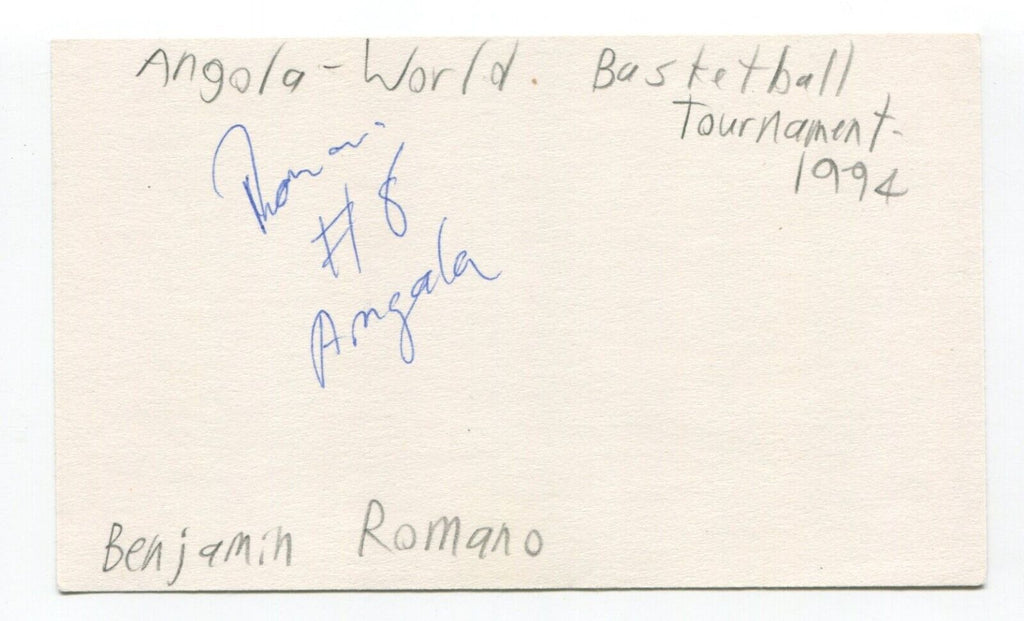 Angola-World. Basketball
Tournament-
1994
Romano
#8
Angola
Benjamin Romano